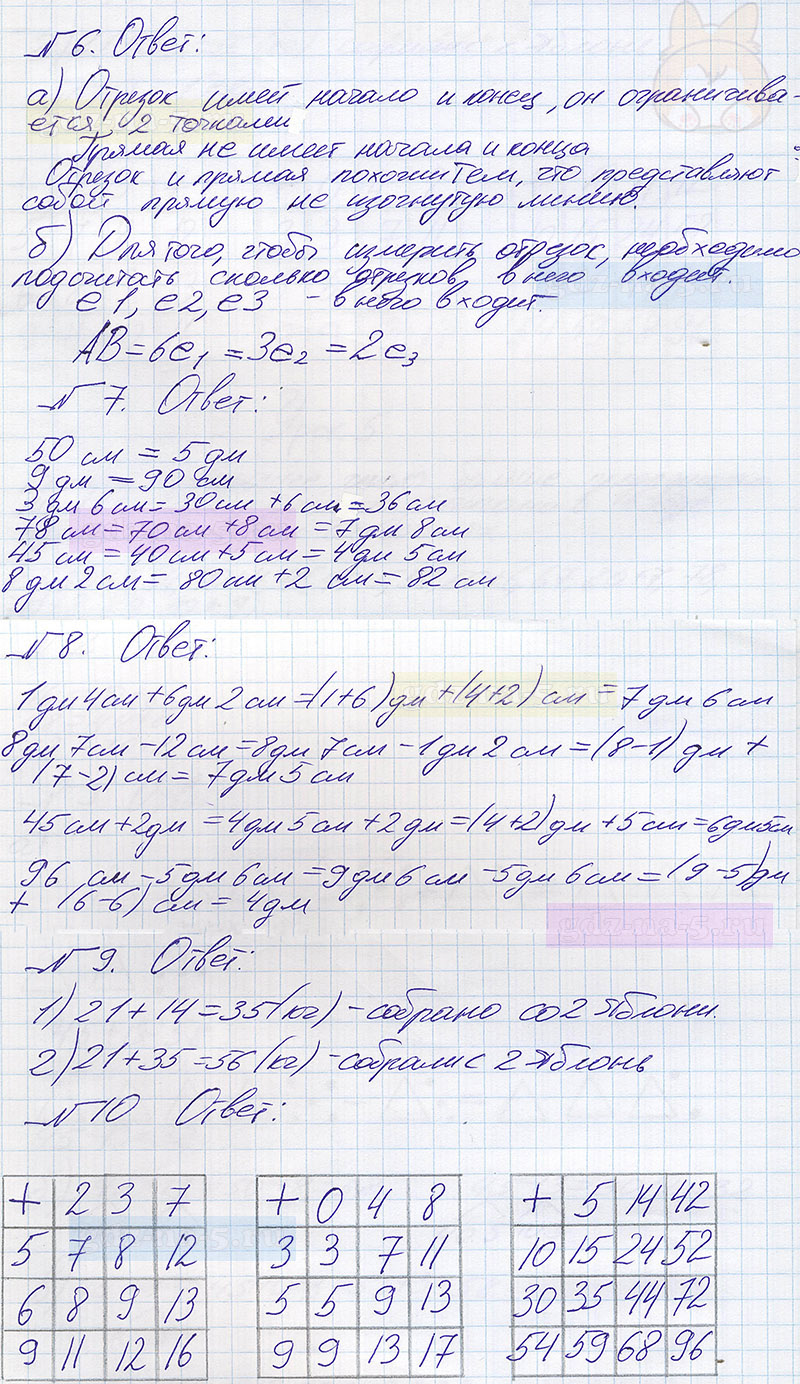 № 6. Ответ:
а) Отрезок имеет начало и конец, он ограничива-
ется 2 точками
Прямая не имеет начала и конца
Отрезок и прямая похожи тем, что представляют
собой прямую не изогнутую линию.
б) Для того, чтобы измерить отрезок, необходимо
подсчитать сколько отрезков в него входит.
е1, е2, е3 - в него входит.
АВ = 6е₁ = 3е₂ = 2е₃
№ 7. Ответ:
50 см = 5 дм
9 дм = 90 см
3 дм 6 см = 30 см + 6 см = 36 см
78 см = 70 см + 8 см = 7 дм 8 см
45 см = 40 см + 5 см = 4 дм 5 см
8 дм 2 см = 80 см + 2 см = 82 см
№ 8. Ответ:
1 дм 4 см + 6 дм 2 см = (1+6) дм + (4+2) см = 7 дм 6 см
8 дм 7 см - 12 см = 8 дм 7 см - 1 дм 2 см = (8-1) дм +
(7-2) см = 7 дм 5 см
45 см + 2 дм = 4 дм 5 см + 2 дм = (4+2) дм + 5 см = 6 дм 5 см
96 см - 5 дм 6 см = 9 дм 6 см - 5 дм 6 см = (9-5) дм
+ (6-6) см = 4 дм
gdz-na-5.ru
№ 9. Ответ:
1) 21 + 14 = 35 (кг) - собрано со 2 яблони.
2) 21 + 35 = 56 (кг) - собрали с 2 яблонь
№ 10 Ответ:
+ 2 3 7
5 7 8 12
6 8 9 13
9 11 12 16
+ 0 4 8
3 3 7 11
5 5 9 13
9 9 13 17
+ 5 14 42
10 15 24 52
30 35 44 72
54 59 68 96